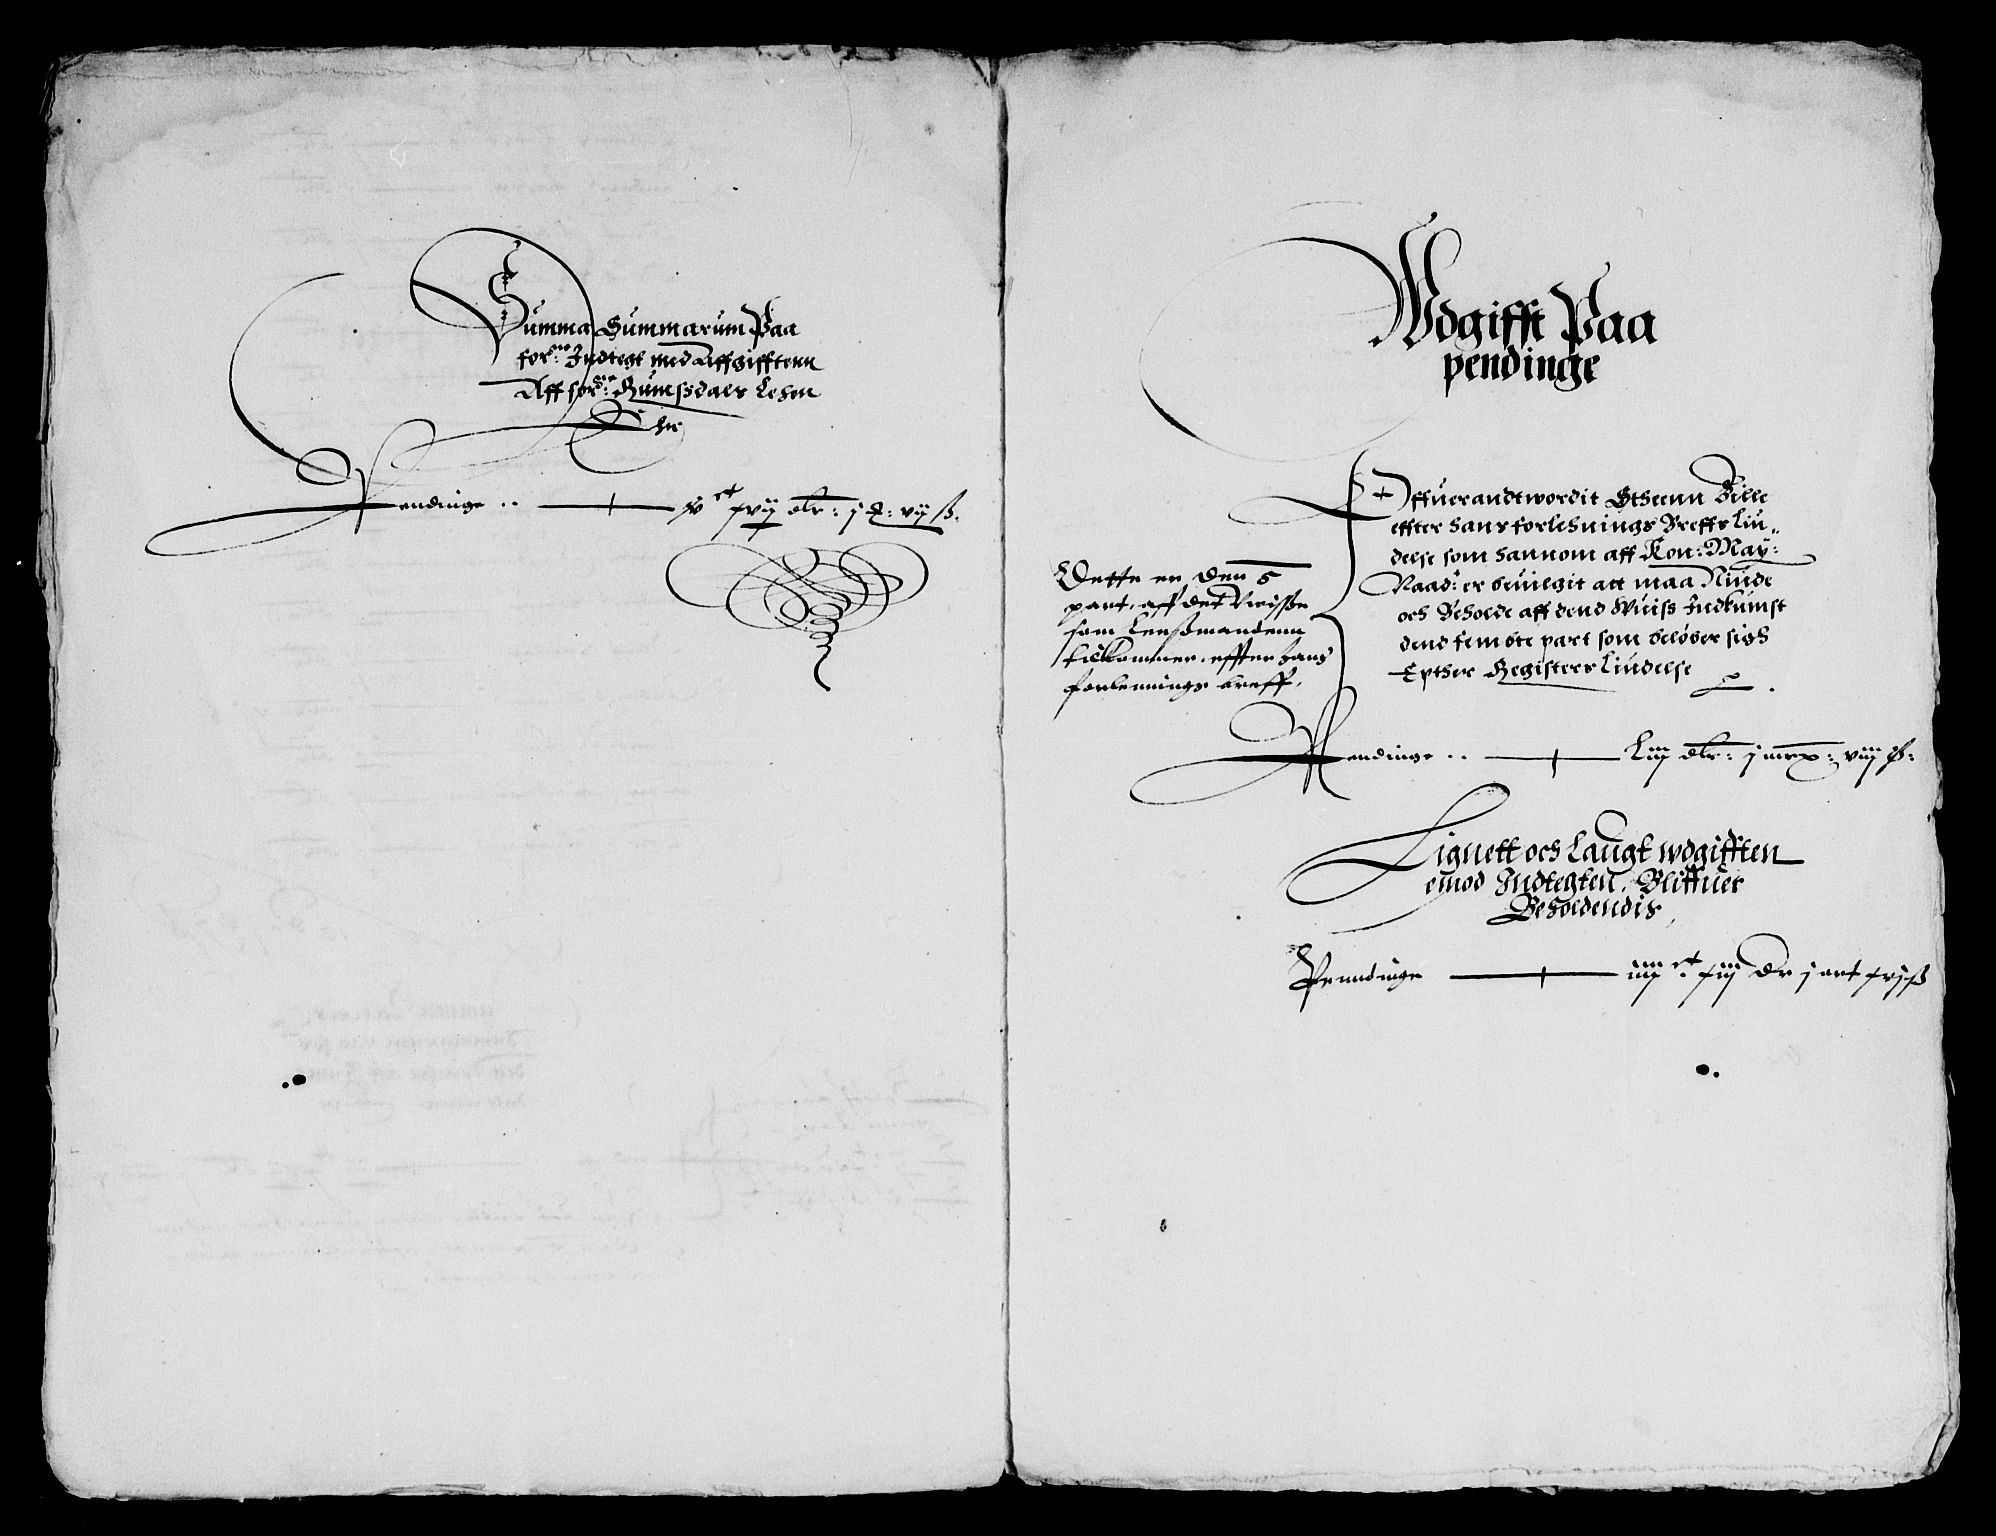 Summa Summarum Paa
forne: Indtegt med Affgifftenn
Aff forne: Rumssdals Lehn
Ehr
Pendinge .. v ct xvij dlr: j ort: vij ß.
Wdgifft Paa
pendinge
Offuerandtwordit Stheenn Bille
effter hans forlehnings Breffs liu..
delse som hannom aff Kon: May:
Naad: er beuilgit att maa Niude
och Beholde aff dend Wuiss Indkumst
dend fembte part som beløber sigh
Epther Registers liudelse
Dette er den 5
part, aff det Visse
som Lenssmandenn
tilkommer effter hans
forlennings breff,
Pendinge .. Liij dlr: j mrx: viij ß:
Lignett och Laugt wdgifften
emod Indtegten, Bliffuer
Beholdendis,
Penndinge iiij ct: xiij dr j ort xvj ß